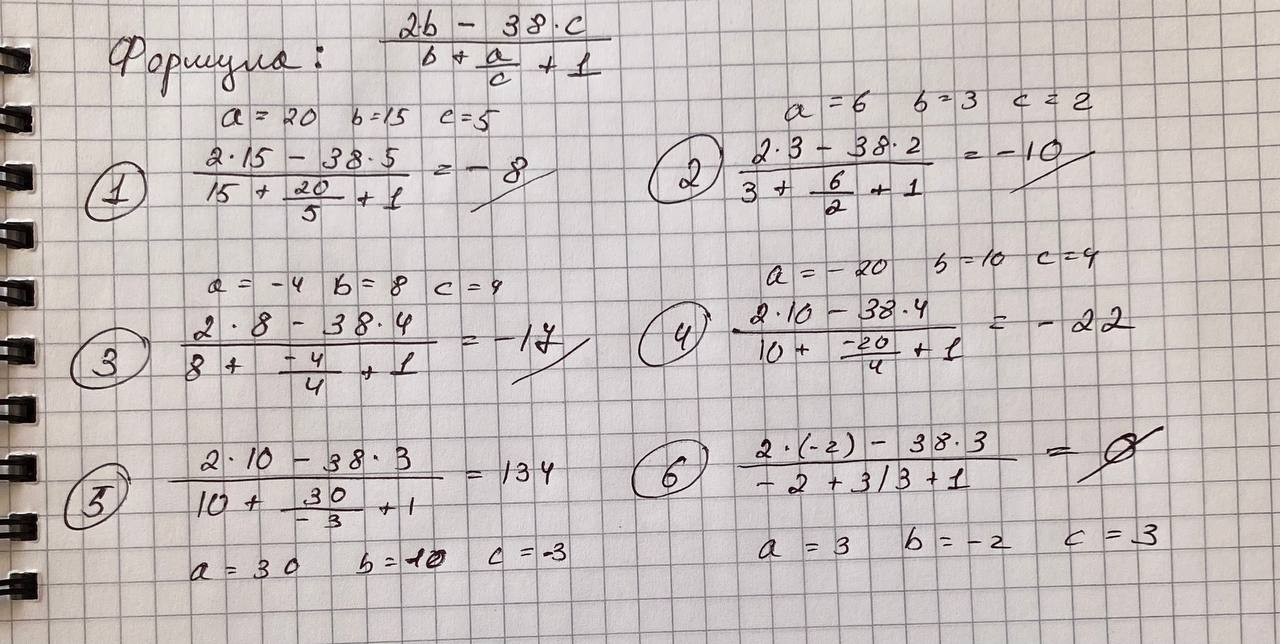 Формула: (2b - 38·c) / (b + a/c + 1)
a = 20 b=15 c=5
① (2·15 - 38·5) / (15 + 20/5 + 1) = -8
a = 6 b=3 c=2
② (2·3 - 38·2) / (3 + 6/2 + 1) = -10
a = -4 b=8 c=4
③ (2·8 - 38·4) / (8 + -4/4 + 1) = -17
a = -20 b=10 c=4
④ (2·10 - 38·4) / (10 + -20/4 + 1) = -22
⑤ (2·10 - 38·3) / (10 + 30/-3 + 1) = 134
a = 30 b=10 c=-3
⑥ (2·(-2) - 38·3) / (-2 + 3/3 + 1) = 0
a = 3 b=-2 c=3